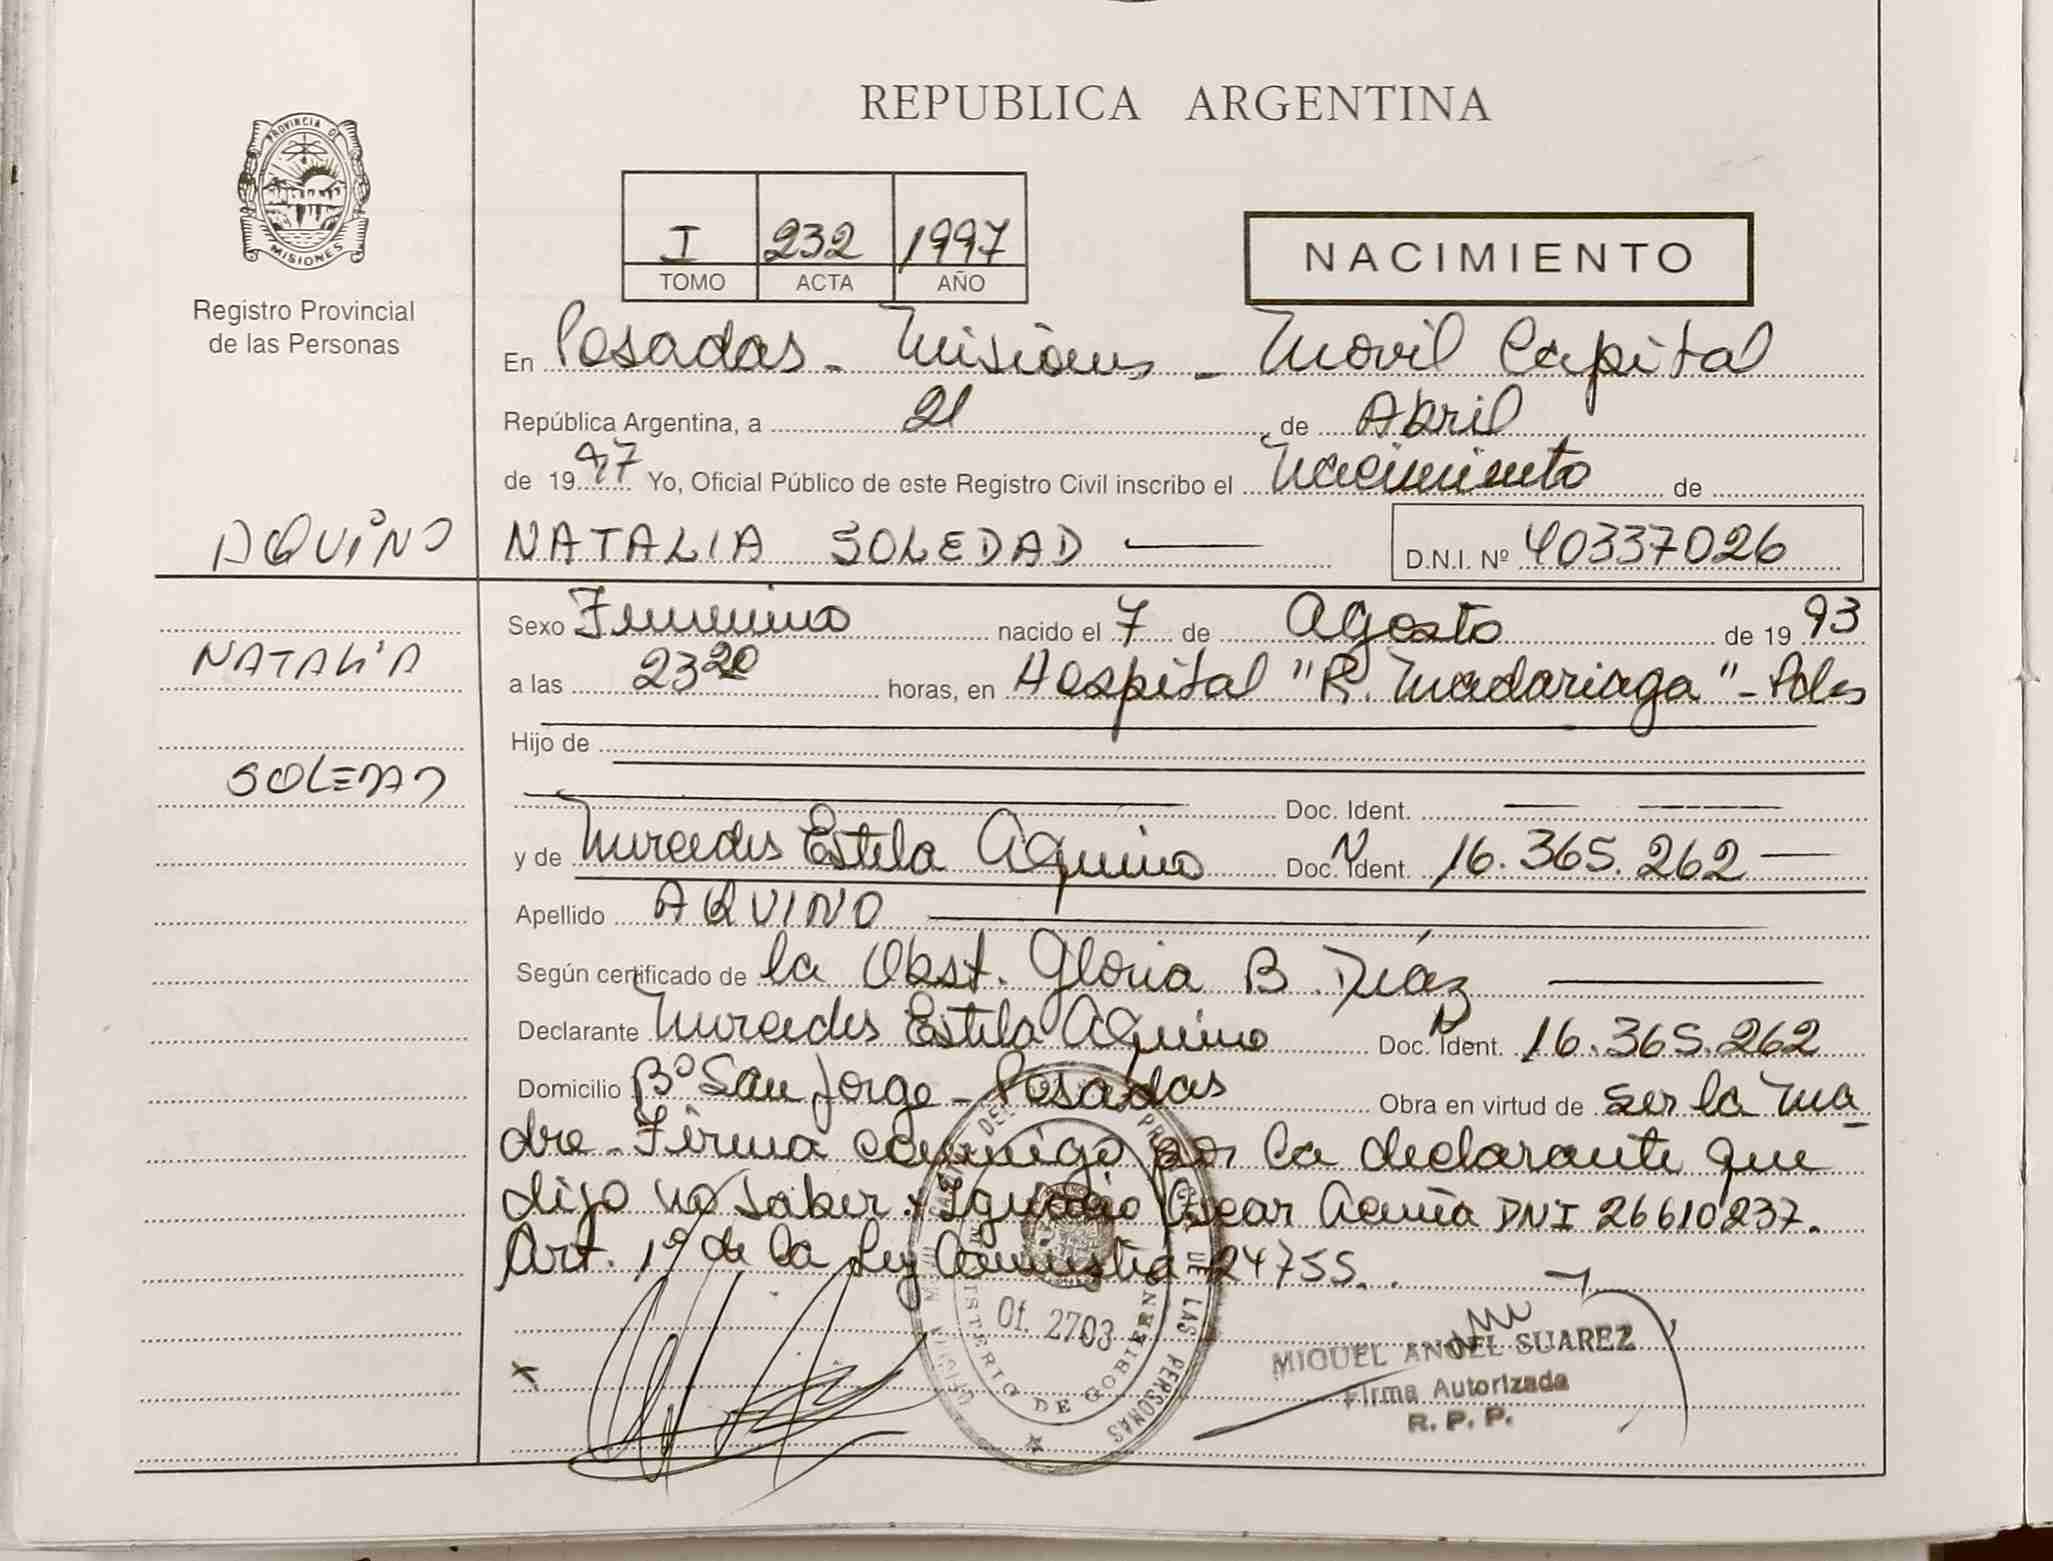 REPUBLICA ARGENTINA
PROVINCIA DE
MISIONES
Registro Provincial
de las Personas
I 232 1997
TOMO ACTA AÑO
NACIMIENTO
En Posadas - Misiones - Movil Capital
República Argentina, a 21 de Abril
de 1997 Yo, Oficial Público de este Registro Civil inscribo el Nacimiento de
AQUINO NATALIA SOLEDAD D.N.I. Nº 40337026
Sexo Femenino nacido el 7 de Agosto de 1993
NATALIA
a las 23 20 horas, en Hospital "R. Madariaga" - Pdas
Hijo de
SOLEDAD
Doc. Ident.
y de Mercedes Estela Aquino Doc. Ident. 16.365.262
Apellido AQUINO
Según certificado de la Obst. Gloria B. Díaz
Declarante Mercedes Estela Aquino Doc. Ident. 16.365.262
Domicilio Bº San Jorge - Posadas Obra en virtud de ser la ma
dre - Firma conmigo por la declarante que
dijo no saber Ignacio Oscar Acuña DNI 26610237.
Art. 1º de la Ley Amnistia 24755.
MINISTERIO DE GOBIERNO
DE LAS PERSONAS
Of. 2703
MIGUEL ANGEL SUAREZ
Firma Autorizada
R. P. P.